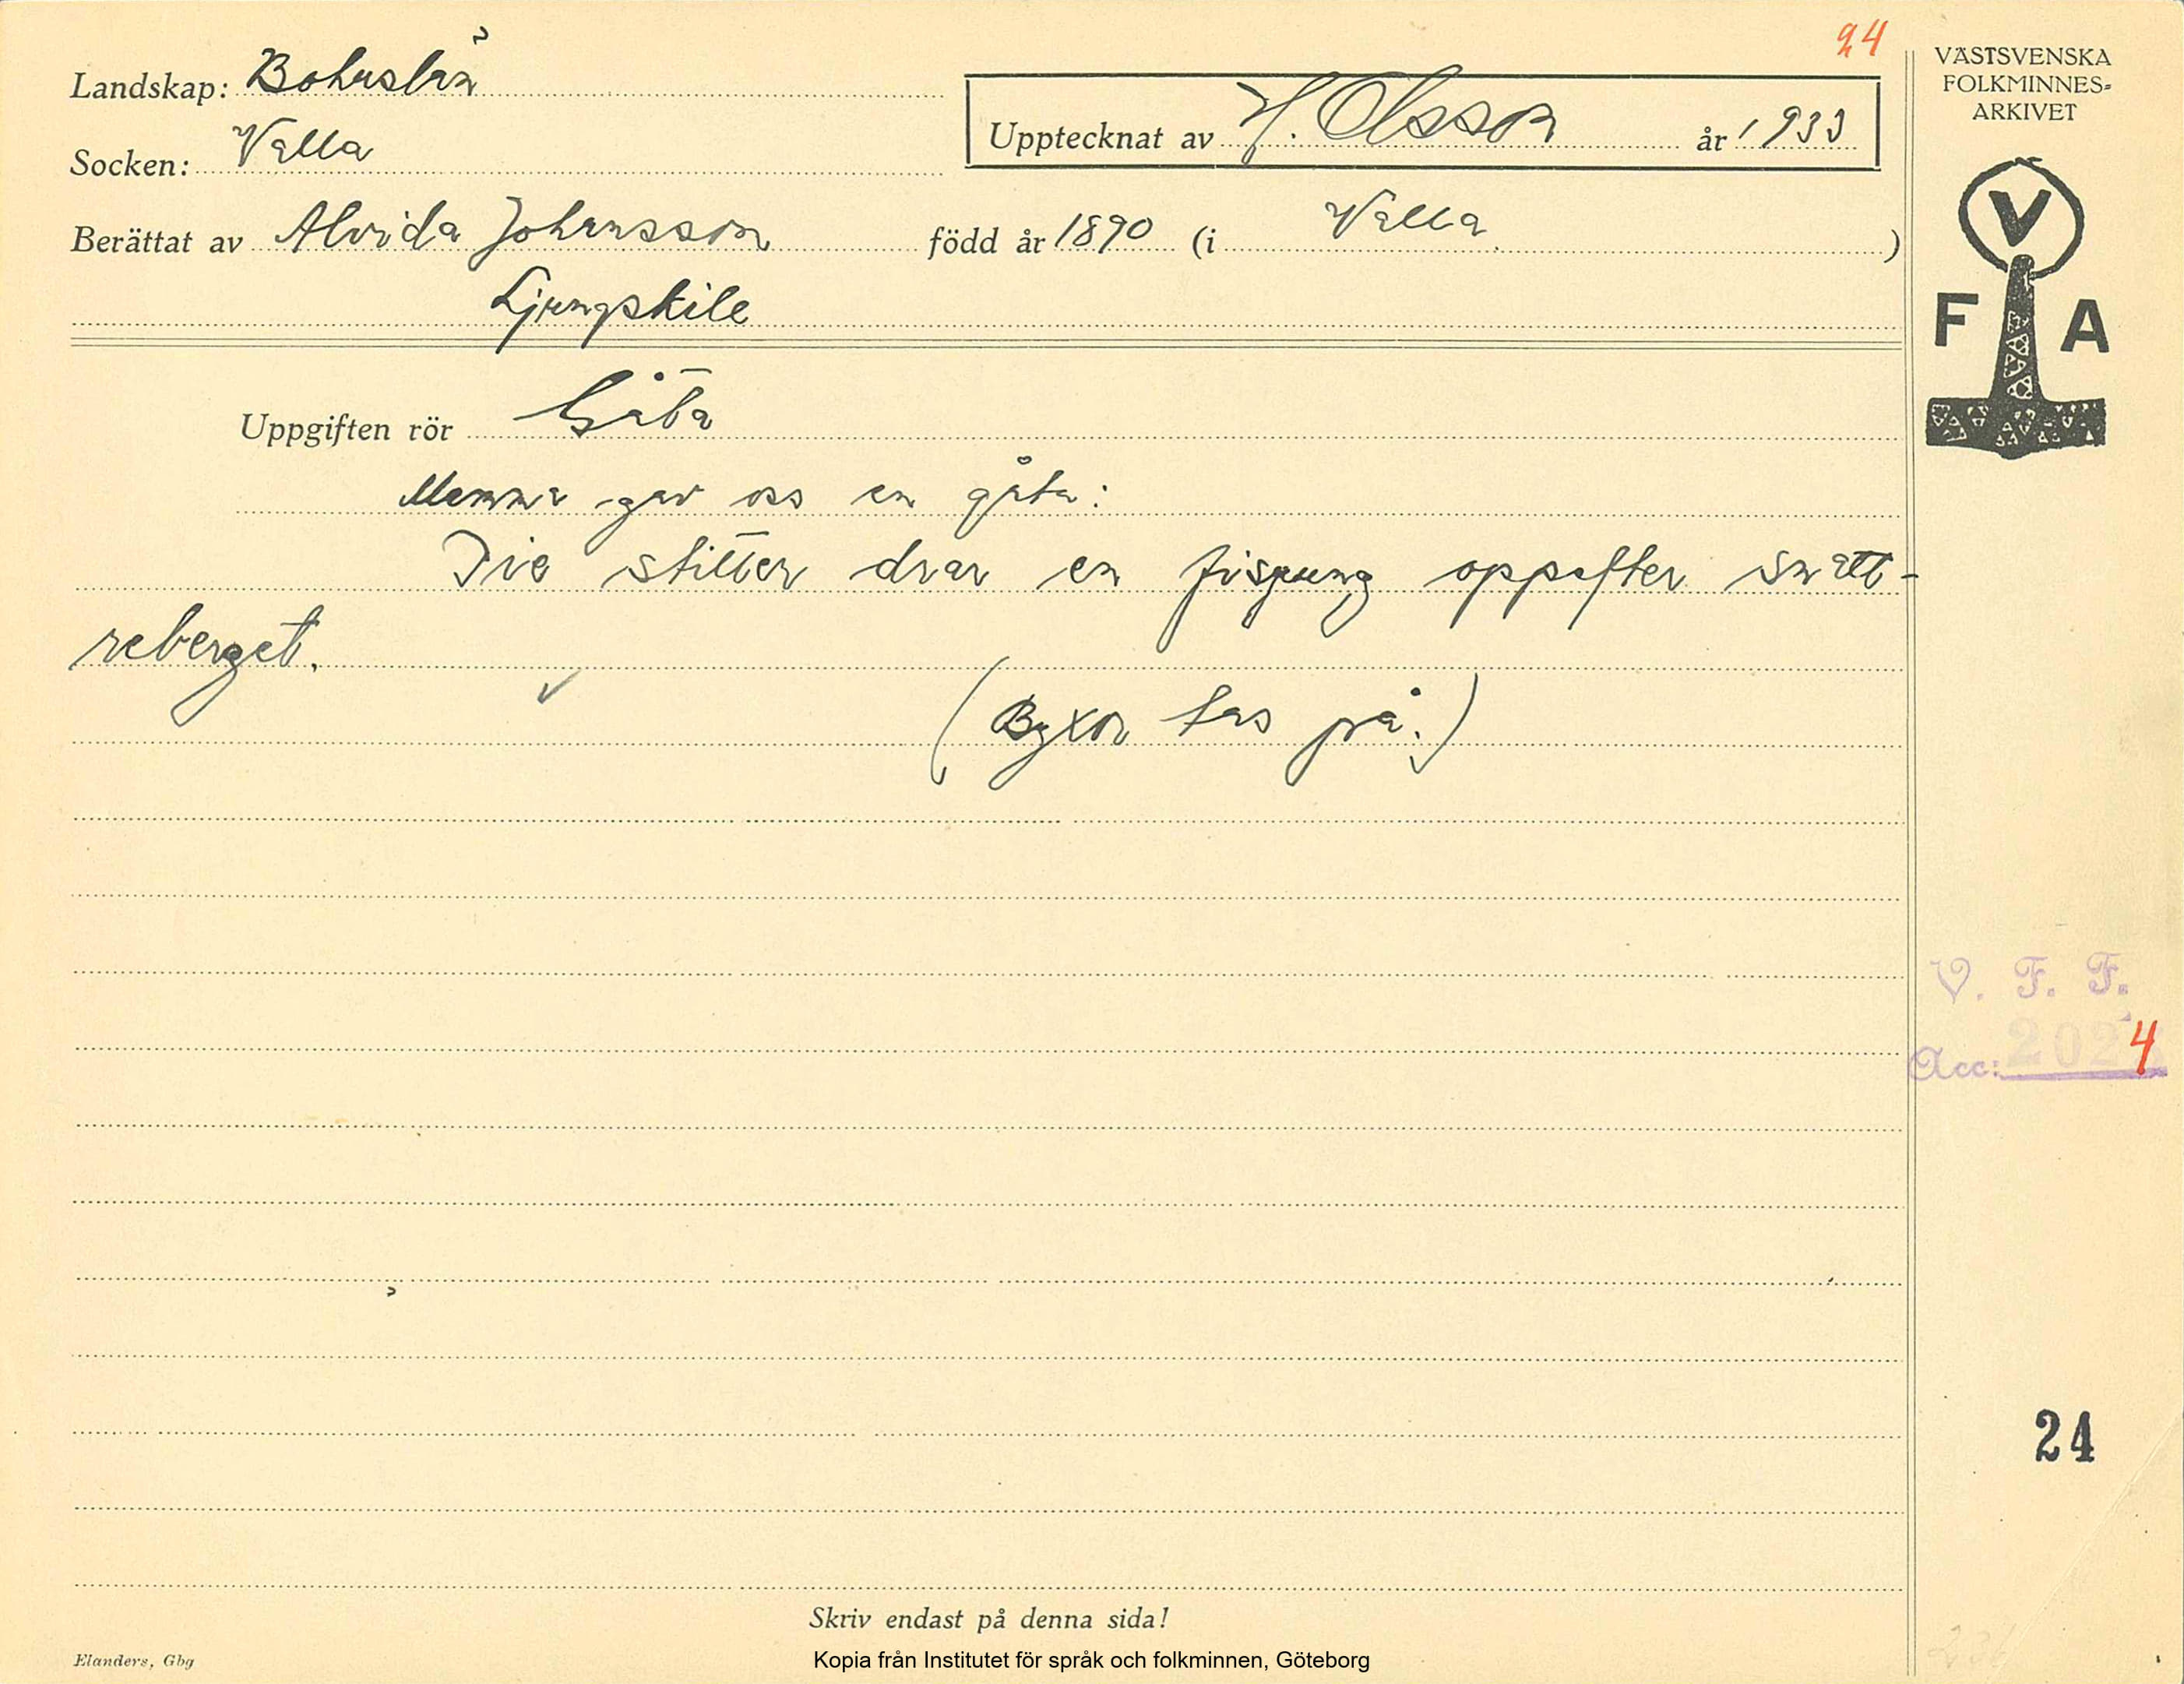 24
Landskap: Bohuslän
Upptecknat av H. Olsson år 1933
Socken: Valla
Berättat av Alvida Johansson född år 1890 (i Valla)
Ljungskile
VÄSTSVENSKA
FOLKMINNES-
ARKIVET
V
F A
Uppgiften rör Gåta
Mamma gav oss en gåta:
Tie stitter drar en fispung oppefter snatt-
reberget.
(Byxor tas på.)
V. F. F.
Acc: 2024
24
Skriv endast på denna sida!
Elanders, Gbg
Kopia från Institutet för språk och folkminnen, Göteborg